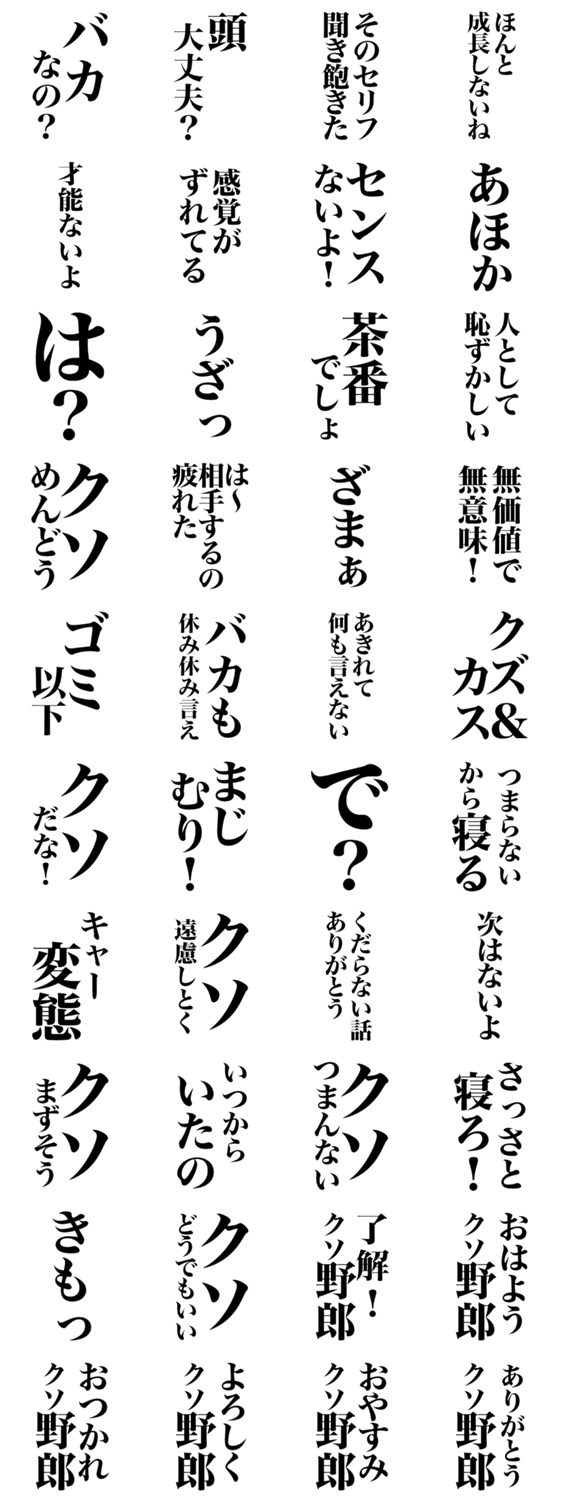 バカ
なの？
頭
大丈夫？
そのセリフ
聞き飽きた
ほんと
成長しないね
才能ないよ
感覚が
ずれてる
センス
ないよ！
あほか
は？
うざっ
茶番
でしょ
人として
恥ずかしい
クソ
めんどう
は〜
相手するの
疲れた
ざまぁ
無価値で
無意味！
ゴミ
以下
バカも
休み休み言え
あきれて
何も言えない
クズ&
カス
クソ
だな！
まじ
むり！
で？
つまらない
から寝る
キャー
変態
クソ
遠慮しとく
くだらない話
ありがとう
次はないよ
クソ
まずそう
いつから
いたの
クソ
つまんない
さっさと
寝ろ！
きもっ
クソ
どうでもいい
了解！
クソ野郎
おはよう
クソ野郎
おつかれ
クソ野郎
よろしく
クソ野郎
おやすみ
クソ野郎
ありがとう
クソ野郎